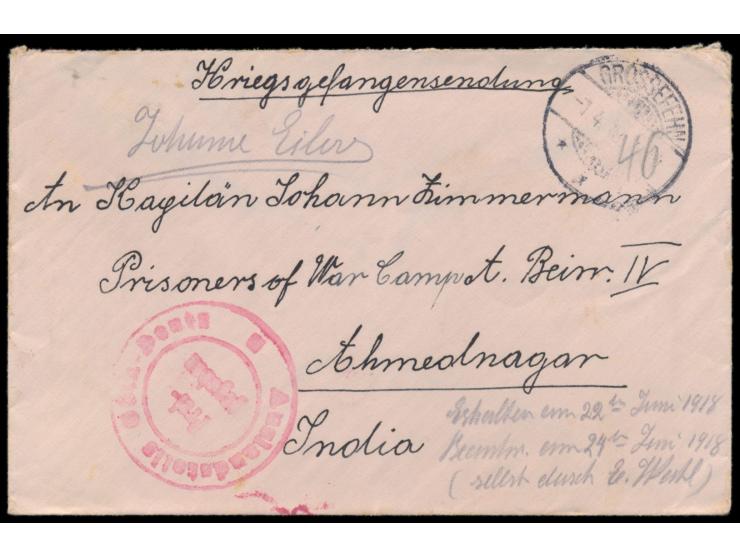 Kriegsgefangensendung
GROSSEFEHN
-7.4.
46
Johanne Eilers
An Kapitän Johann Zimmermann
Prisoners of War Camp A. Beim. IV
Ahmednagar
India
Auslandstelle Emm.
Frei
Erhalten am 22ten Juni 1918
Beantw. am 24ten Juni 1918
(selbst durch E.